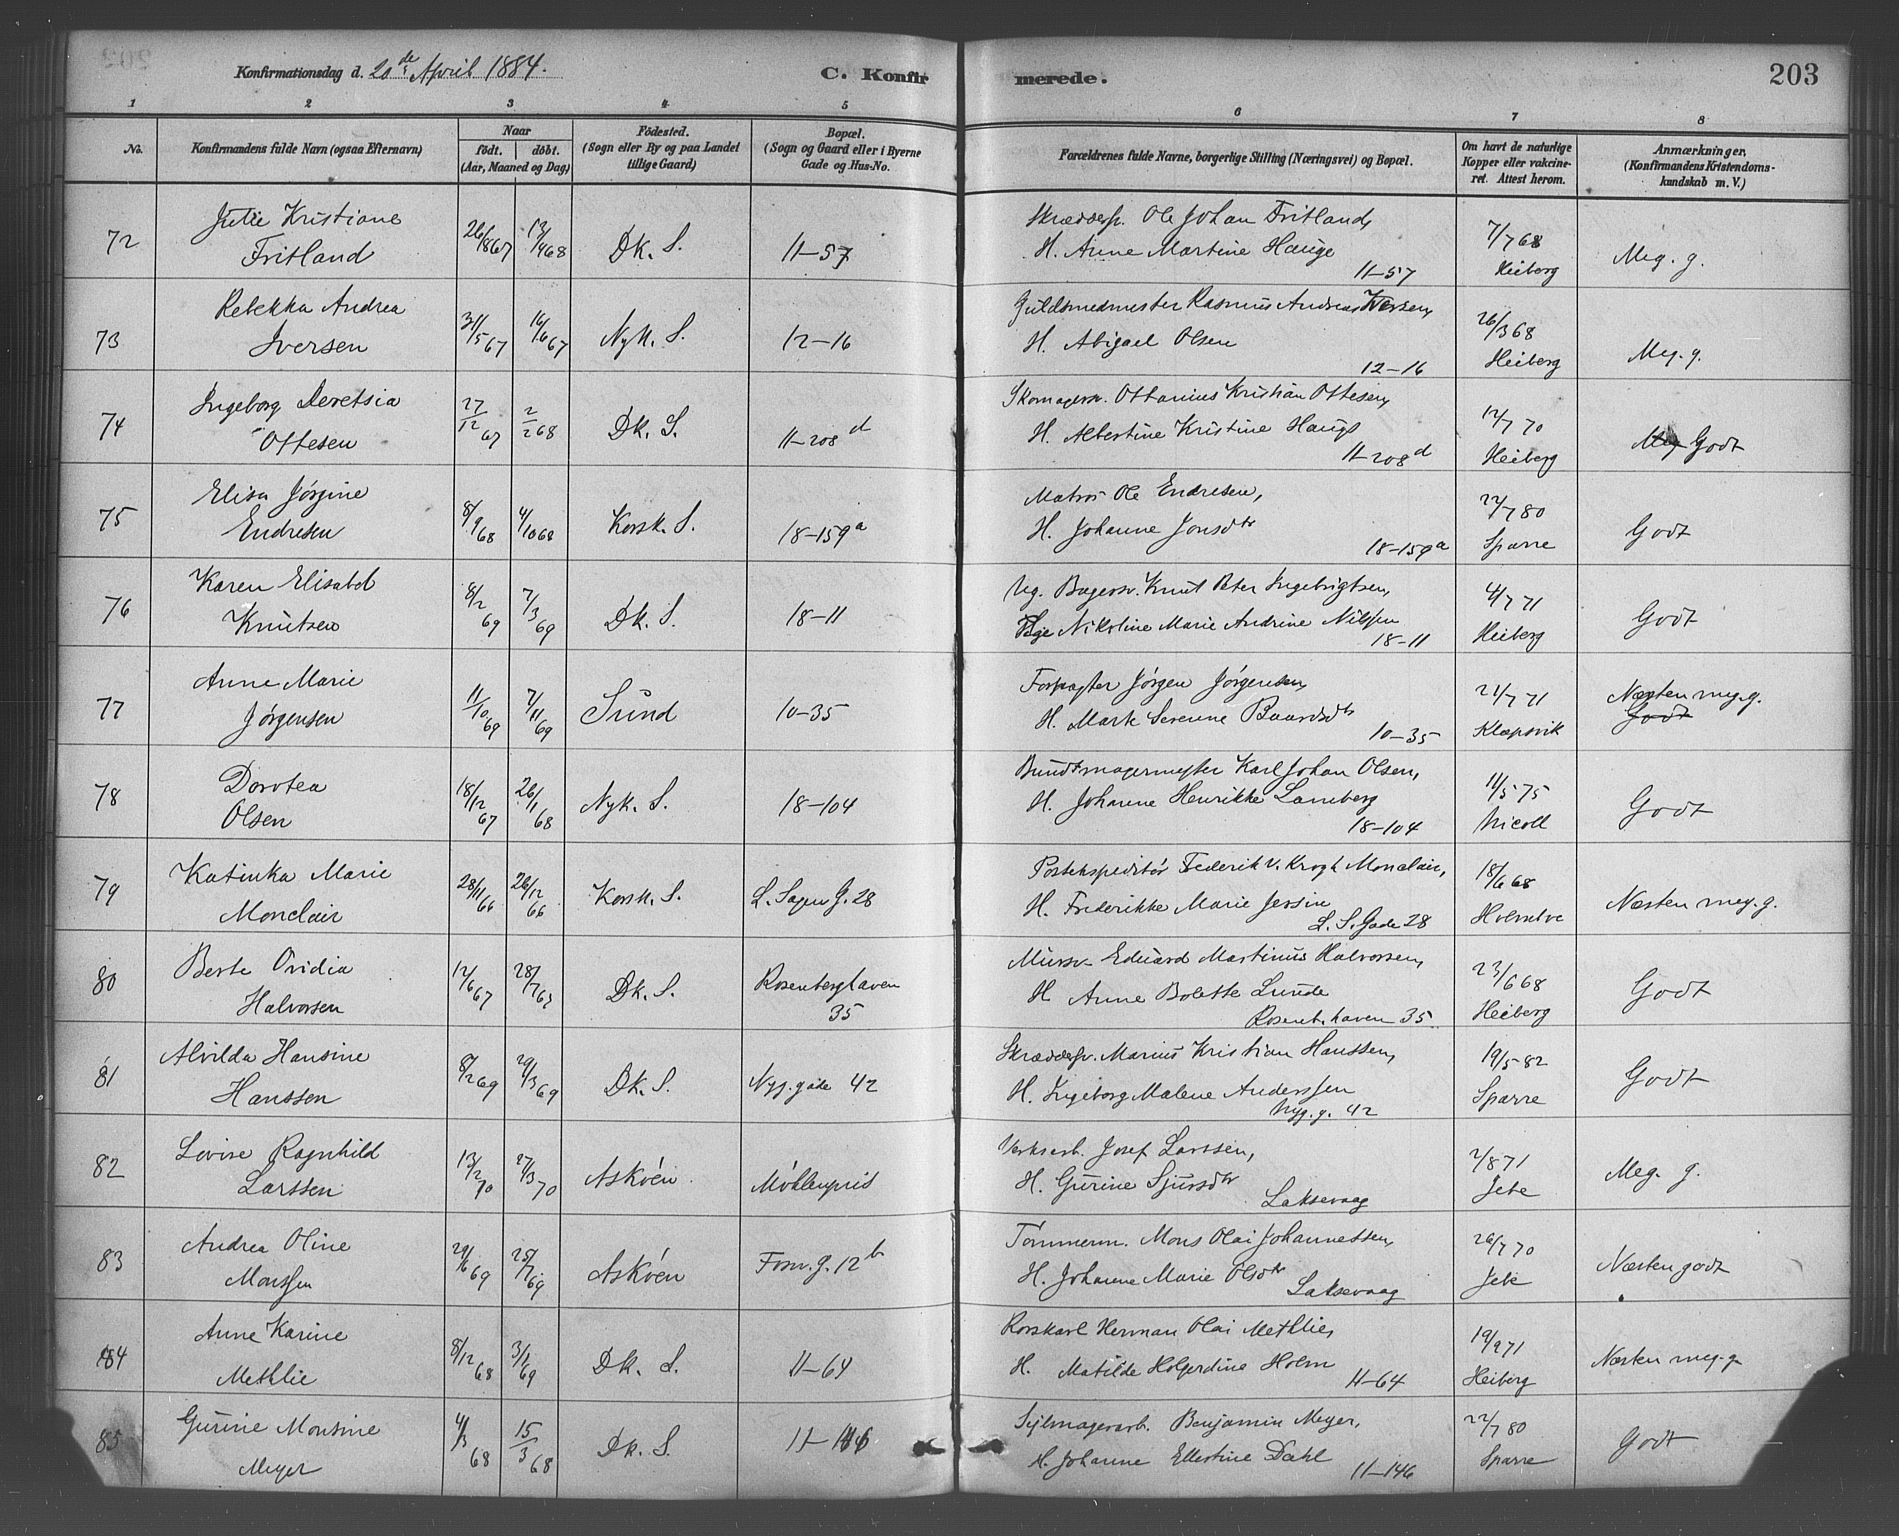 Konfirmationsdag d. 20de April 1884.
C. Konfirmerede.
203
1 2 3 4 5 6 7 8
No.
Konfirmandens fulde Navn (ogsaa Efternavn)
Naar
född. | döbt.
(Aar, Maaned og Dag)
Födested.
(Sogn eller By og paa Landet
tillige Gaard)
Bopæl.
(Sogn og Gaard eller i Byerne
Gade og Hus-No.
Forældrenes fulde Navne, borgerlige Stilling (Næringsvei) og Bopæl.
Om havt de naturlige
Kopper eller vakcine-
ret. Attest herom.
Anmærkninger,
(Konfirmandens Kristendoms-
kundskab m. V.)
72 Julie Kristiane
Fritland
26/8 67 13/4 68 Dk. S. 11-57
Skrædersv. Ole Johan Fritland,
H. Anne Martine Hauge
11-57
7/7 68
Heiberg
Meg. g.
73 Rebekka Andrea
Iversen
31/5 67 16/6 67 Nyk. S. 12-16
Guldsmedmester Rasmus Andreas Iversen,
H. Abigael Olsen
12-16
26/3 68
Heiberg
Meg. g.
74 Ingeborg Deretsia
Ottesen
27/12 67 2/2 68 Dk. S. 11-208 d
Skomagersv. Ottanius Kristian Ottesen,
H. Albertine Kristine Hauge
11-208 d
12/7 70
Heiberg
Meg Godt
75 Elisa Jörgine
Endresen
8/9 68 4/10 68 Korsk. S. 18-159a
Matros Ole Endresen,
H. Johanne Jonsdtr
18-159a
22/7 80
Sparre
Godt
76 Karen Elisabet
Knutsen
8/2 69 7/3 69 Dk. S. 18-11
Ug. Bagersv. Knut Peter Ingebrigtsen,
Pige Nikoline Marie Andrine Nilssen
18-11
4/7 71
Heiberg
Godt
77 Anne Marie
Jörgensen
11/10 69 7/11 69 Sund 10-35
Forpagter Jörgen Jörgensen,
H. Marte Serenne Baardsdtr
10-35
21/7 71
Klæpsvik
Næsten meg. g.
Godt
78 Dorotea
Olsen
18/12 67 26/1 68 Nyk. S. 18-104
Buntmagermester Karl Johan Olsen,
H. Johanne Henrikke Lamberg
18-104
11/5 75
Nicoll
Godt
79 Katinka Marie
Monclair
28/11 66 26/12 66 Korsk. S. L. Sagen G. 28
Postekspeditör Frederik v. Krogh Monclair,
H. Frederikke Marie Jersin
L. S. Gade 28
18/6 68
Næsten meg. g.
80 Berte Ovidia
Halvorsen
12/6 67 28/7 67 Dk. S. Rosenberghaven
35
Mursv. Eduard Martinus Halvorsen,
H. Anne Bolette Lunde
Rosenb.haven 35
23/6 68
Heiberg
Godt
81 Alvilda Hansine
Hanssen
8/2 69 29/3 69 Dk. S. Nyg.gade 42
Skrædersv. Marius Kristian Hanssen,
H. Ingeborg Malene Anderssen
Nyg. g. 42
19/5 82
Sparre
Godt
82 Lovise Ragnhild
Larssen
13/2 70 27/3 70 Asköen Möhlenpris
Verksarb. Josef Larssen,
H. Gurine Sjursdtr
Laksevaag
2/8 71
Jebe
Meg. g.
83 Andrea Oline
Monssen
29/6 69 25/7 69 Asköen Fosw. g. 12b
Tömmerm. Mons Olai Johannessen,
H. Johanne Marie Olsdtr
Laksevaag
26/7 70
Jebe
Næsten godt
84 Anne Karine
Methlie
8/12 68 3/1 69 Dk. S. 11-64
Rorskarl Herman Olai Methlie,
H. Matilde Holgerdine Holm
11-64
19/9 71
Heiberg
Næsten meg. g
85 Gurine Monsine
Meyer
4/3 68 15/3 68 Dk. S. 11-146
Seilmagerarb. Benjamin Meyer,
H. Johanne Ellertine Dahl
11-146
22/7 80
Sparre
Godt